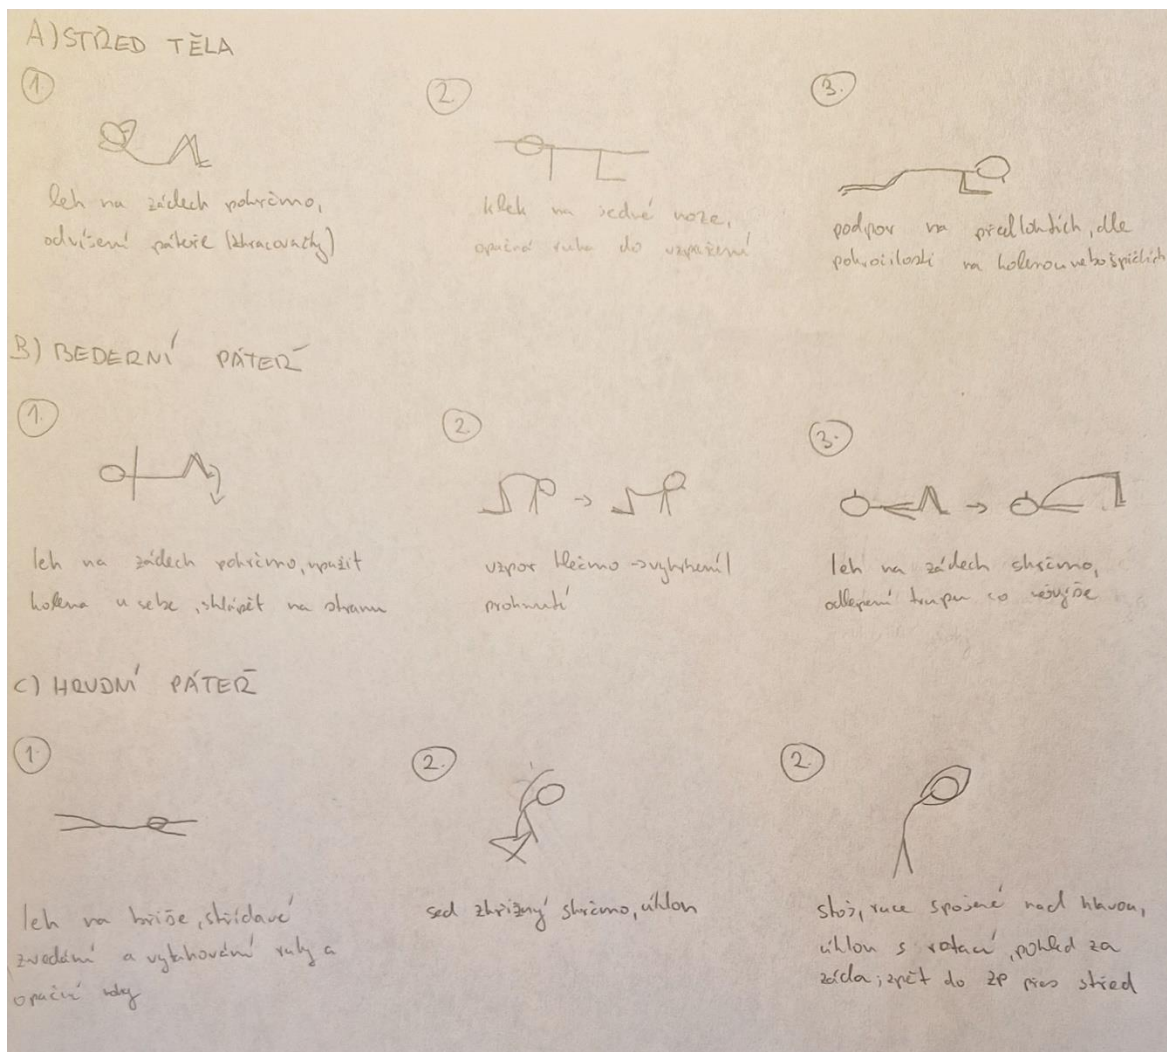 A) STŘED TĚLA
1.
leh na zádech pokrčmo,
odvíjení páteře (zkracovačky)
2.
klek na jedné noze,
opačná ruka do vzpažení
3.
podpor na předloktích, dle
pokročilosti na kolenou nebo špičkách
B) BEDERNÍ PÁTEŘ
1.
leh na zádech pokrčmo, upažit
kolena u sebe, sklápět na stranu
2.
vzpor klečmo → vyhrbení
prohnutí
3.
leh na zádech skrčmo,
odlepení trupu co nejvýše
C) HRUDNÍ PÁTEŘ
1.
leh na břiše, střídavé
zvedání a vytahování ruky a
opačné nohy
2.
sed zkřižný skrčmo, úklon
2.
stoj, ruce spojené nad hlavou,
úklon s rotací, pohled za
záda; zpět do ZP přes střed